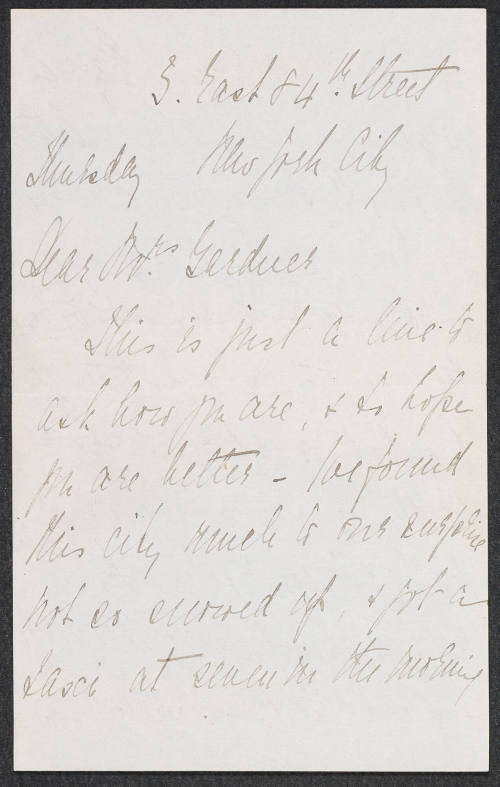 3. East 84th. Street
Thursday New York City
Dear Mrs. Gardner
This is just a line to
ask how you are, & to hope
you are better - We found
this city much to our surprise
not so snowed up, & got a
taxi at seven in the morning